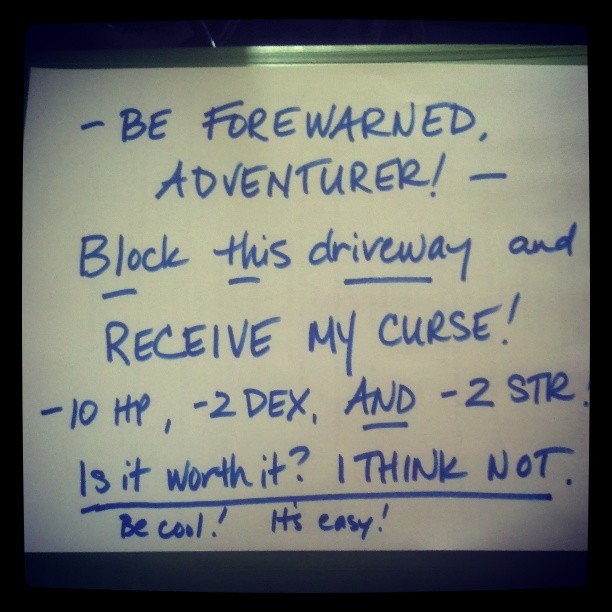 - BE FOREWARNED,
ADVENTURER! -
Block this driveway and
RECEIVE MY CURSE!
-10 HP, -2 DEX, AND -2 STR!
Is it worth it? I THINK NOT.
Be cool! It's easy!